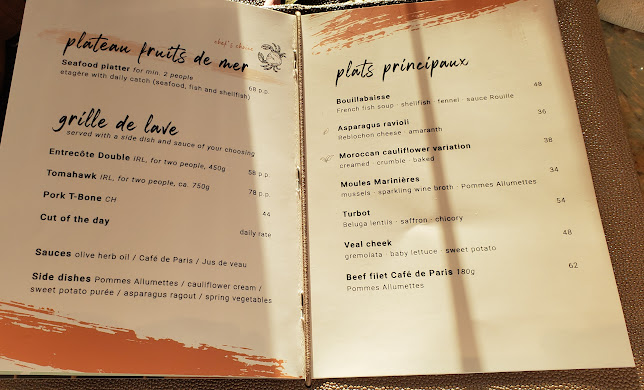 chef's choice
plateau fruits de mer
Seafood platter for min. 2 people
etagère with daily catch (seafood, fish and shellfish) 69 p.p.
grille de lave
served with a side dish and sauce of your choosing
Entrecôte Double IRL, for two people, 450g 58 p.p.
Tomahawk IRL, for two people, ca. 750g 78 p.p.
Pork T-Bone CH 44
Cut of the day daily rate
Sauces olive herb oil / Café de Paris / Jus de veau
Side dishes Pommes Allumettes / cauliflower cream /
sweet potato purée / asparagus ragout / spring vegetables
plats principaux
Bouillabaisse 48
French fish soup · shellfish · fennel · sauce Rouille
Asparagus ravioli 36
Reblochon cheese · amaranth
Moroccan cauliflower variation 38
creamed · crumble · baked
Moules Marinières 34
mussels · sparkling wine broth · Pommes Allumettes
Turbot 54
Beluga lentils · saffron · chicory
Veal cheek 48
gremolata · baby lettuce · sweet potato
Beef filet Café de Paris 180g 62
Pommes Allumettes